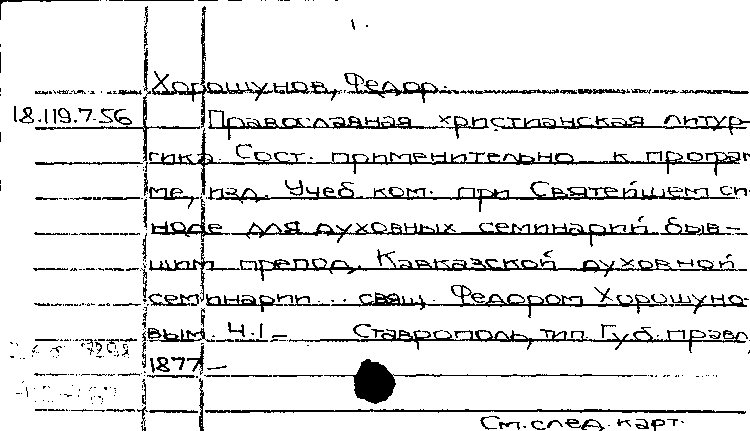 1.
Хорошунов, Федор.
18.119.7.56 Православная христианская литур-
гика. Сост. применительно к програм
ме, изд. Учеб. ком. при Святейшем си
ноде для духовных семинарий быв-
шим препод. Кавказской духовной
семинарии... свящ. Федором Хорошуно-
вым. Ч.1- Ставрополь, тип. Губ. правл
1877-
См. след. карт.